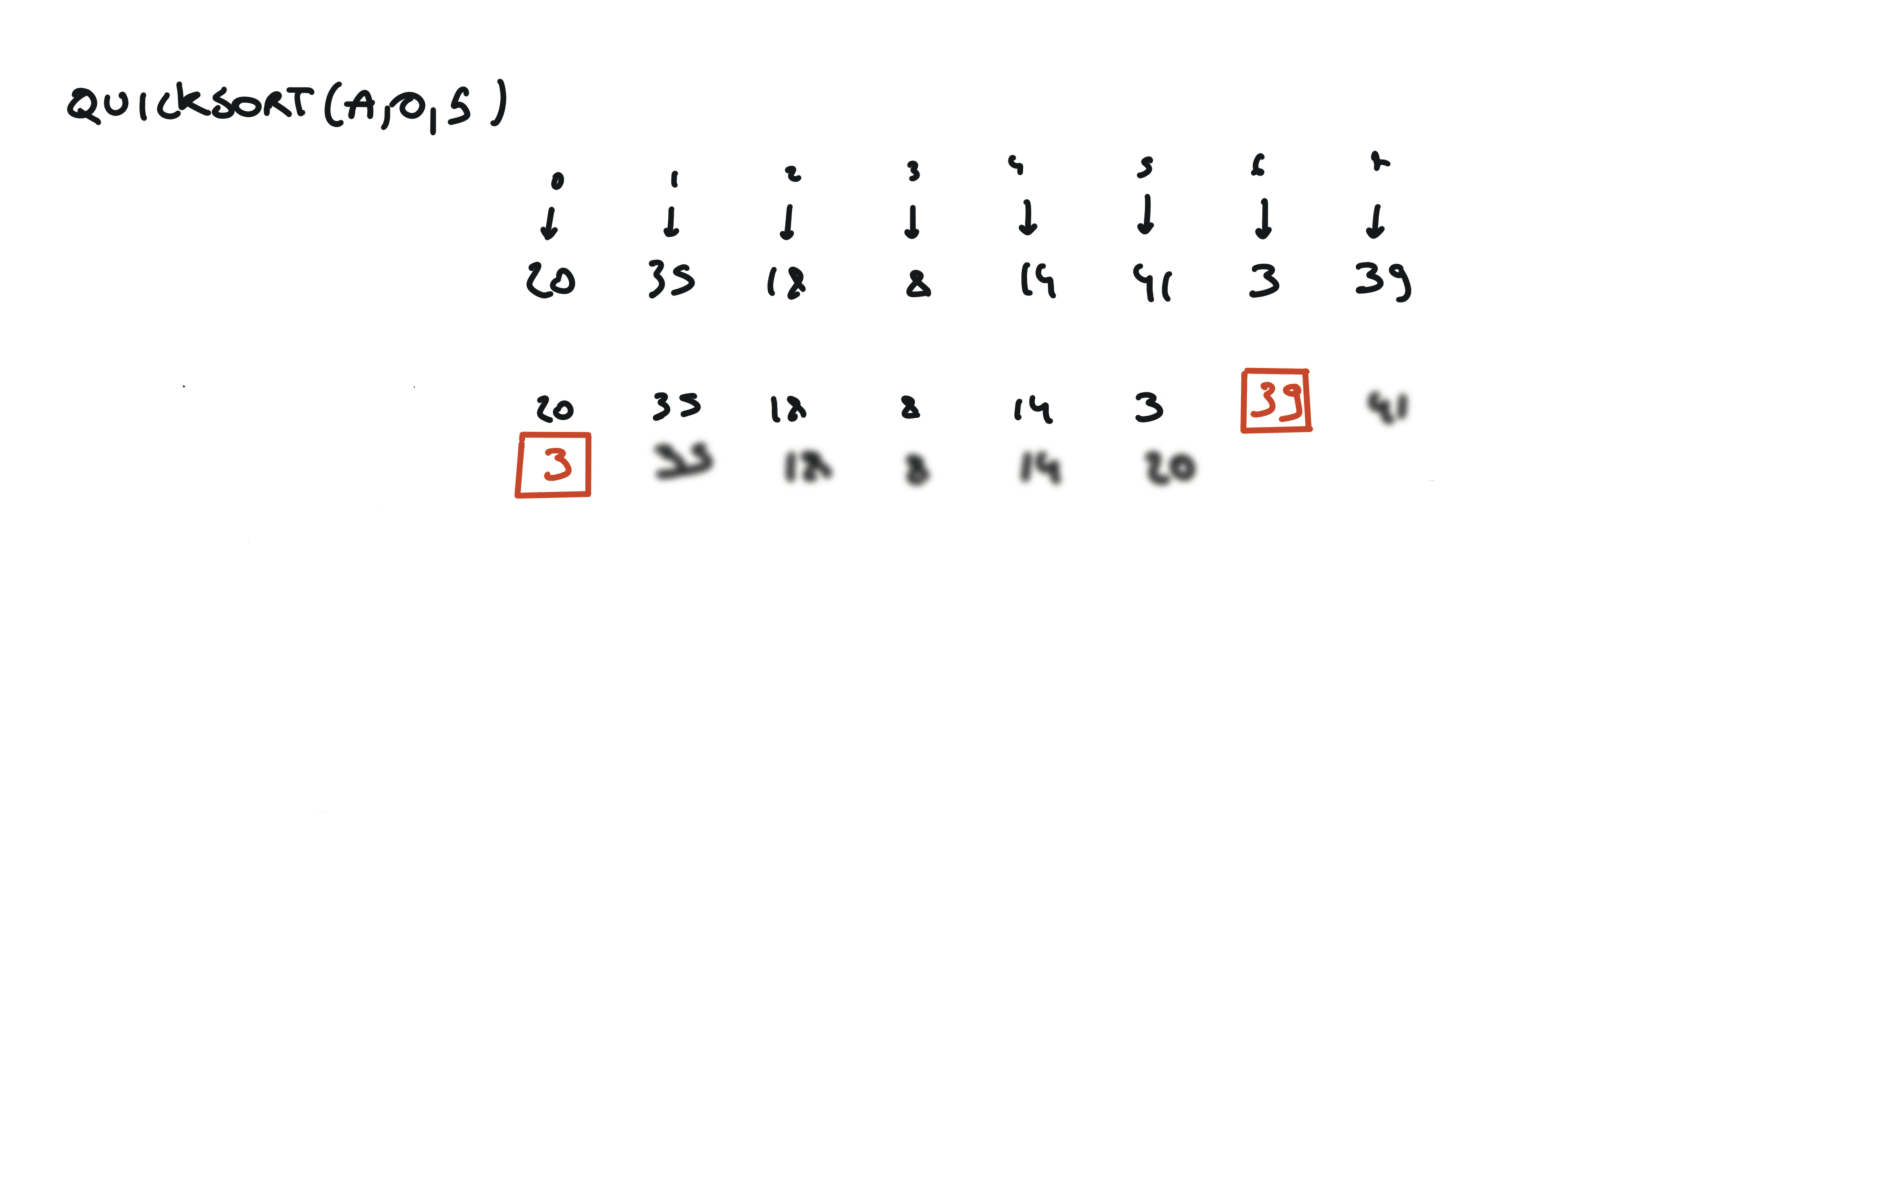 QUICKSORT(A,0,5)
0 1 2 3 4 5 6 7
20 35 18 8 14 41 3 39
20 35 18 8 14 3 39 41
3 35 18 8 14 20